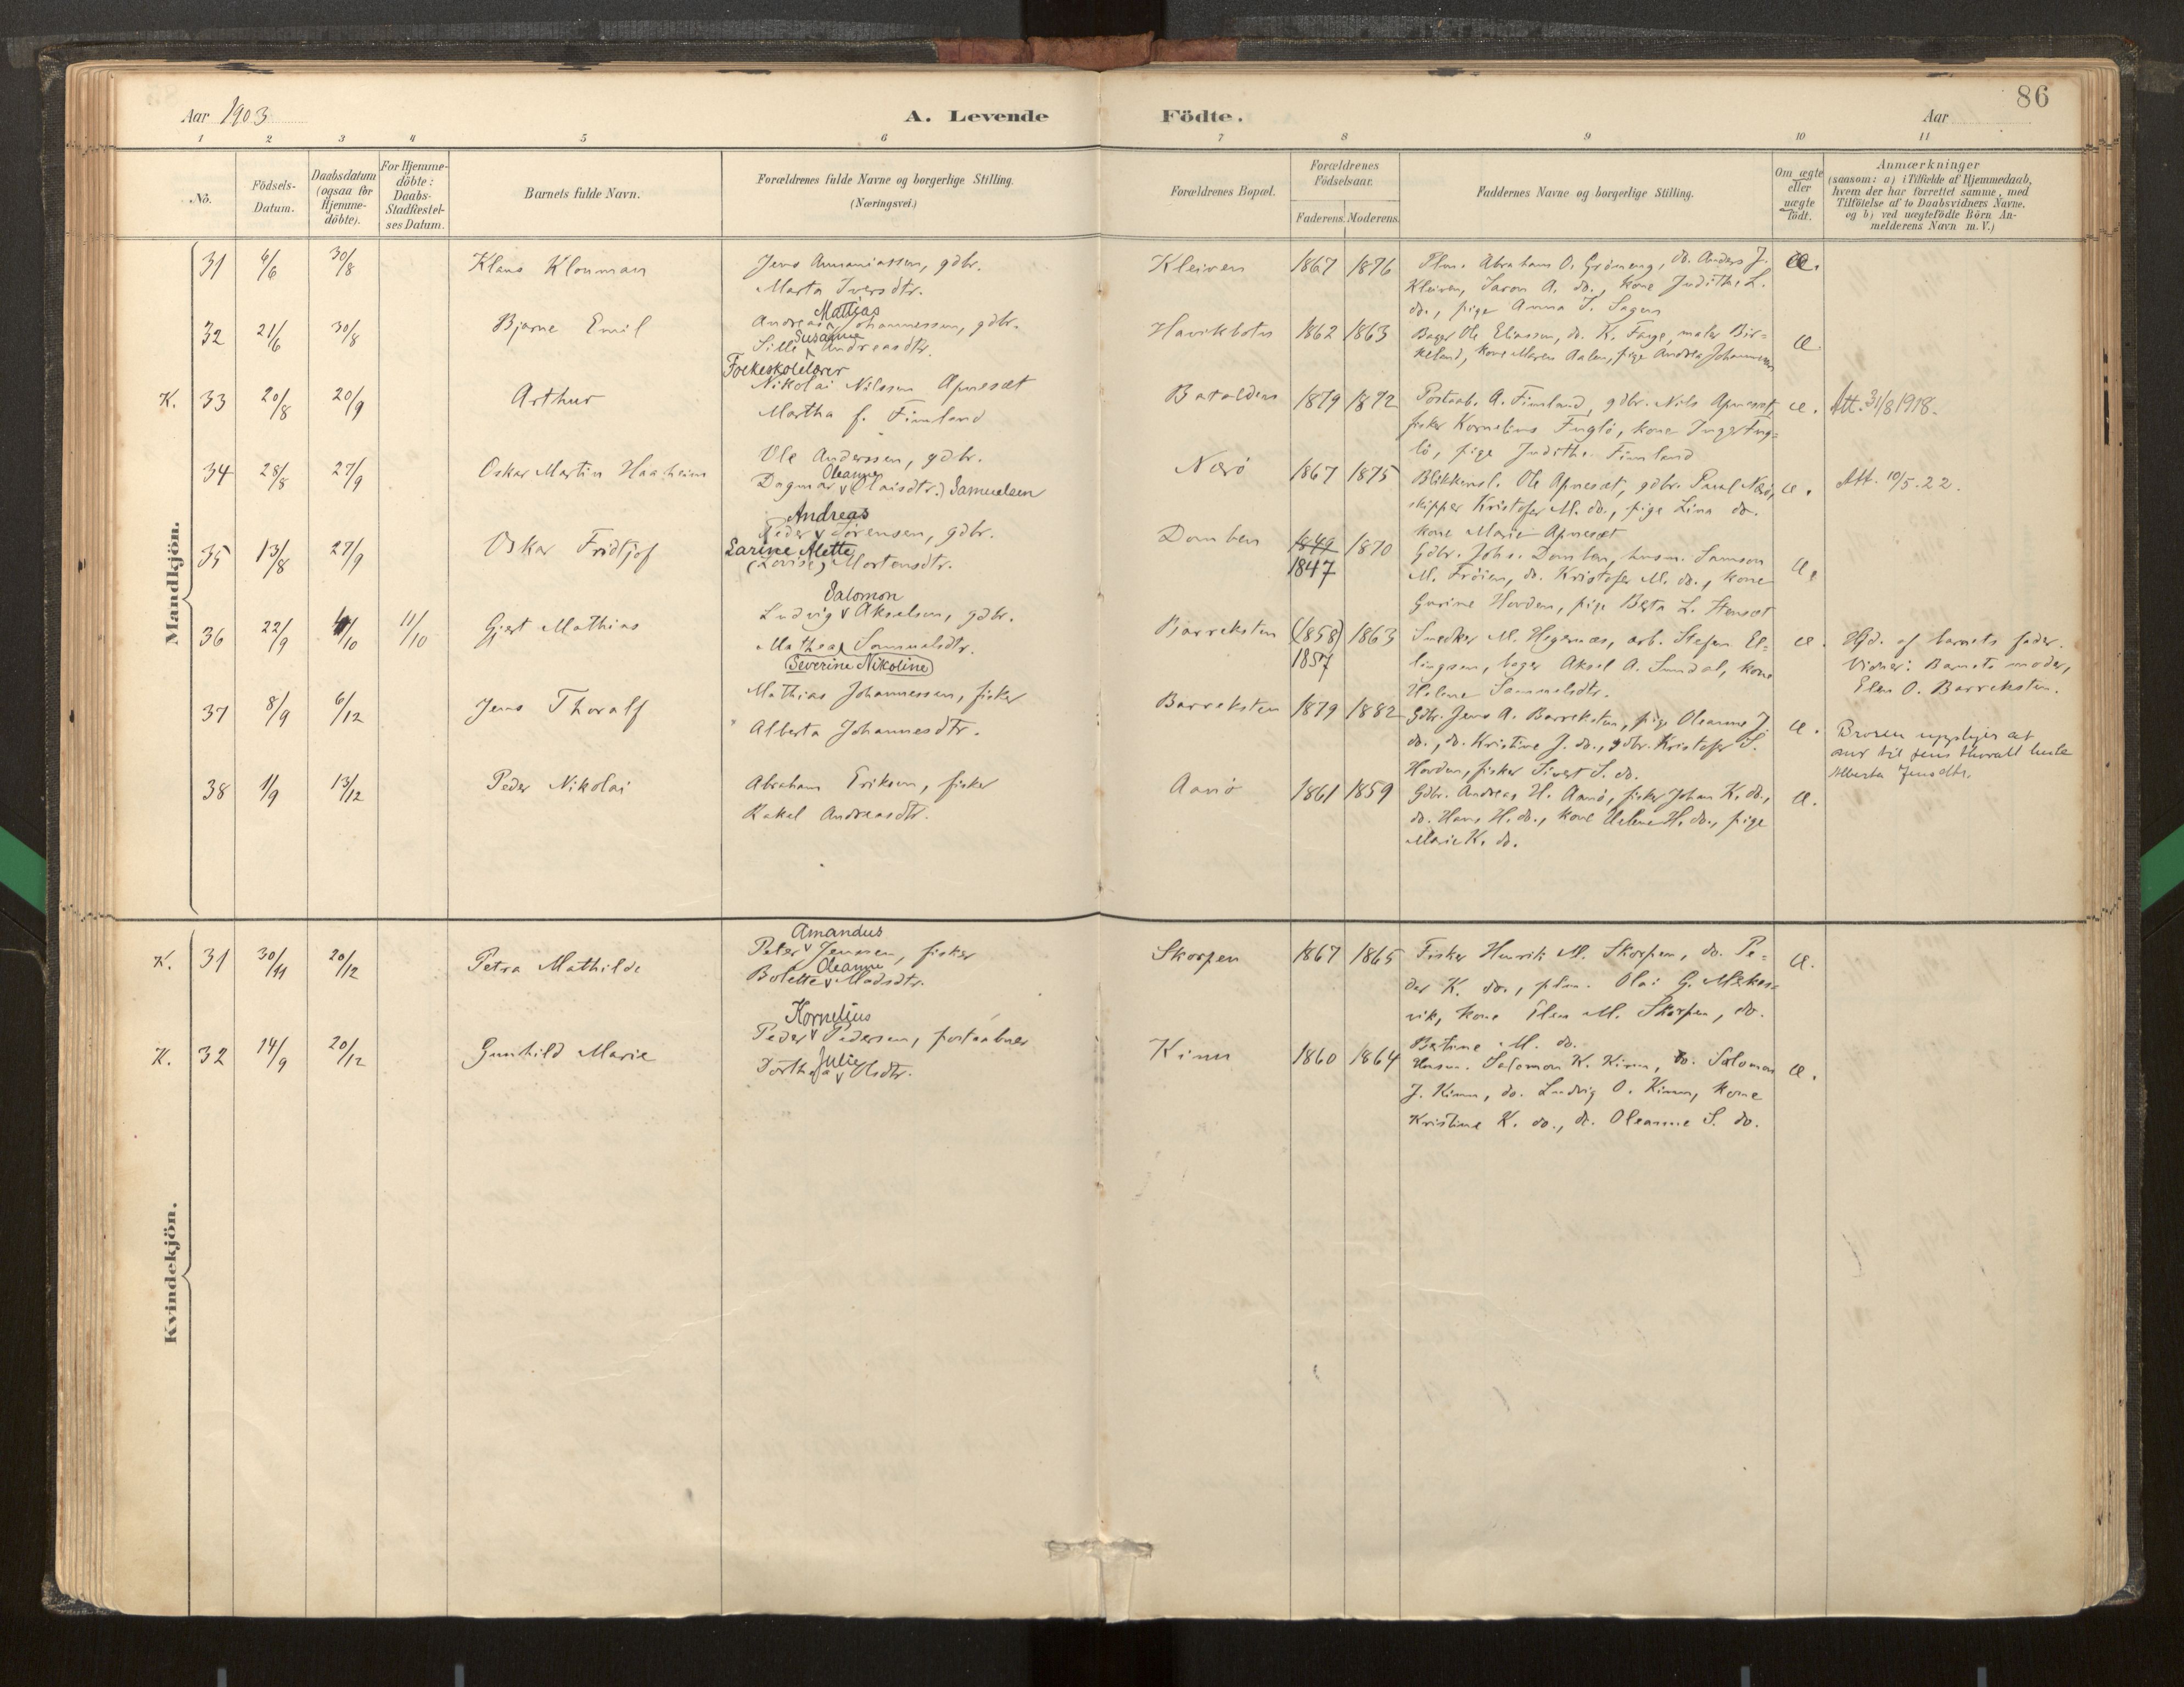 86
Aar 1903
A. Levende
Födte.
Aar
1 2 3 4 5 6 7 8 9 10 11
No.
Födsels-
Datum.
Daabsdatum
(ogsaa för
Hjemme-
döbte).
For Hjemme-
döbte:
Daabs-
Stadfæstel-
ses Datum.
Barnets fulde Navn.
Forældrenes fulde Navne og borgerlige Stilling.
(Næringsvei.)
Forældrenes Bopæl.
Forældrenes
Födselsaar.
Faderens. Moderens.
Faddernes Navne og borgerlige Stilling.
Om ægte
eller
uægte
födt.
Anmærkninger
(saasom: a) i Tilfælde af Hjemmedaab,
hvem der har forrettet samme, med
Tilföielse af to Daabsvidners Navne,
og b) ved uægtefödte Börn An-
melderens Navn m. V.)
Mandkjön.
31 6/6 30/8 Klaus Klouman
Jens Ananiassen, gdbr.
Marta Iversdtr.
Kleiven 1867 1876
Plm. Abraham O. Gröneng, do. Anders J.
Kleiven, Saron A. do., kone Judithe L.
do., pige Anna T. Sagen
æ.
32 21/6 30/8 Bjarne Emil
Mathias
Andreas Johannessen, gdbr.
Susanne
Sille Andreasdtr.
Havikbotn 1862 1863
Bager Ole Eliassen, do. K. Farge, maler Bir-
keland, kone Maren Aalen, pige Andrea Johannessen
æ.
K. 33 20/8 20/9 Arthur
Folkeskolelærer
Nikolai Nilssen Apneset
Martha f. Fimland
Batalden 1879 1872
Postaab. A. Fimland, gdbr. Nils Apneset,
fisker Kornelius Fuglö, kone Inger Fug-
lö, pige Judithe Fimland
æ.
Att. 31/8 1918.
34 28/8 27/9 Oskar Martin Haaheim
Ole Anderssen, gdbr.
Oleanne
Dagmar Olaisdtr.) Samuelsen
Nærö 1867 1875
Blikkensl. Ole Apneset, gdbr. Paul Nærö,
skipper Kristofer M. do., pige Lina do.
kone Marie Apneset
æ.
Att. 10/5. 22.
35 13/8 27/9 Oskar Fridtjof
Andreas
Peder Sörensen, gdbr.
Sarine Alette
(Lovise) Mortensdtr.
Domben 1849 1870
1847
Gdbr. Johs. Domben, husm. Samson
M. Fröien, do. Kristofer M. do., kone
Gurine Hovden, pige Berta L. Stenset
æ.
36 22/9 4/10 11/10 Gjert Mathias
Salomon
Ludvig Akselsen, gdbr.
Mathea Samuelsdtr.
(Severine Nikoline)
Barreksten (1858) 1863
1857
Snedker M. Hegernæs, arb. Stefen El-
lingsen, bager Aksel A. Sundal, kone
Helene Sammelsdtr.
æ.
Hjd. af barnets fader.
Vidner: Barnets moder,
Elen O. Barreksten.
37 8/9 6/12 Jens Thoralf
Mathias Johannessen, fisker
Alberta Johannesdtr.
Barreksten 1879 1882
Gdbr. Jens A. Barreksten, pige Oleanne J.
do., do. Kristine J. do., gdbr. Kristofer S.
Hovden, fisker Sivert S. do.
æ.
Broren upplyser at
mor til Jens Thoralf heite
Alberta Jensdtr.
38 1/9 13/12 Peder Nikolai
Abraham Eriksen, fisker
Rakel Andreasdtr.
Aarö 1861 1859
Gdbr. Andreas H. Aarö, fisker Johan K. do.,
do. Hans H. do., kone Helene H. do., pige
Marie K. do.
æ.
Kvindekjön.
K. 31 30/11 20/12 Petra Mathilde
Amandus
Peter Jensen, fisker
Oleanne
Bolette Madsdtr.
Skorpen 1867 1865
Fisker Henrik M. Skorpen, do. Pe-
der K. do., plm. Olai G.
vik, kone Elen M. Skorpen, do.
Bertine M. do.
æ.
K. 32 14/9 20/12 Gunhild Marie
Kornelius
Peder Pedersen, postaabner
Julie
Dorthea Olsdtr.
Kinn 1860 1864
Husm. Salomon K. Kinn, do. Salomon
J. Kinn, do. Ludvig O. Kinn, kone
Kristine K. do., do. Oleanne S. do.
æ.